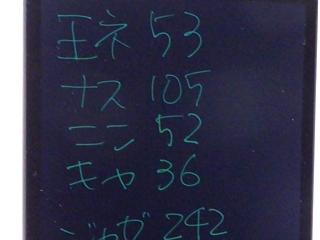 玉ネ 53
ナス 105
ニン 52
キャ 36
ジャガ 242